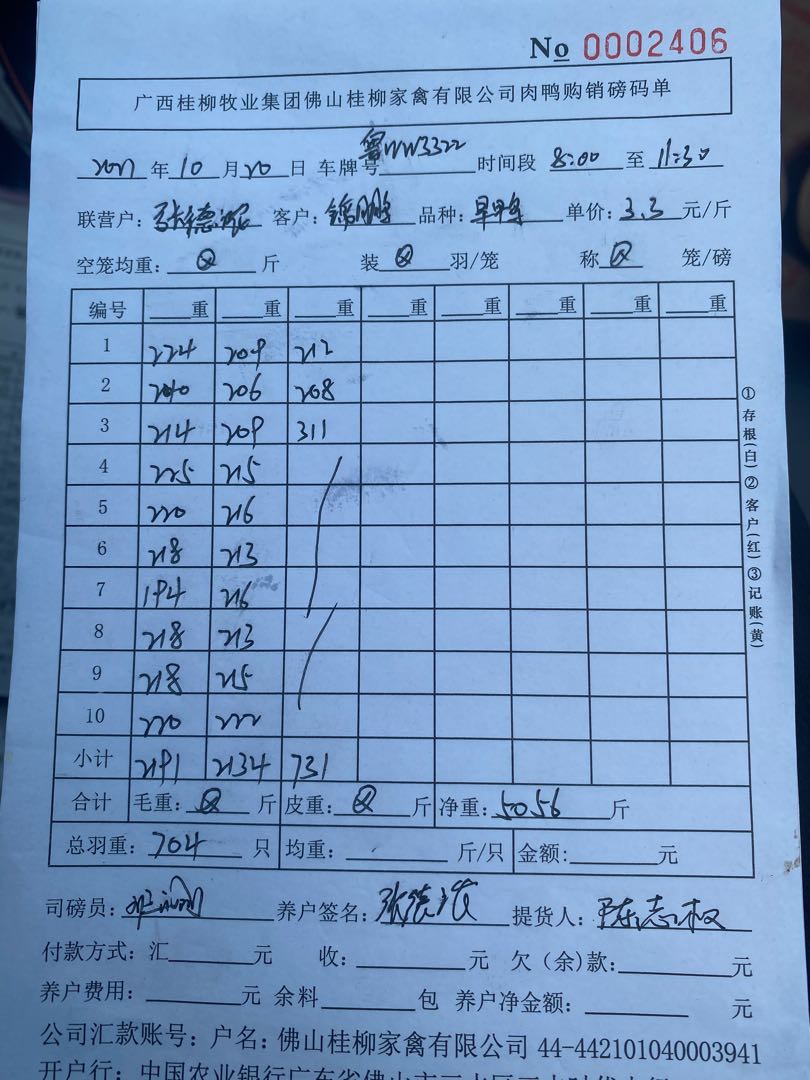 No 0002406
广西桂柳牧业集团佛山桂柳家禽有限公司肉鸭购销磅码单
年 10 月 20 日 车牌号 WW3322 时间段 8:00 至 11:30
联营户: 张德 客户: 锦鹏 品种: 单价: 3.3 元/斤
空笼均重: 斤 装 羽/笼 称 笼/磅
编号 重 重 重 重 重 重 重 重
1 224 209 212
2 206 208
3 214 209 311
4 225 215
5 220 216
6 218 213
7 194 216
8 218 213
9 218 215
10 220 222
小计 2191 2134 731
合计 毛重: 斤 皮重: 斤 净重: 5056 斤
总羽重: 704 只 均重: 斤/只 金额: 元
司磅员: 养户签名: 张德 提货人: 陈志权
付款方式: 汇 元 收: 元 欠（余）款: 元
养户费用: 元 余料 包 养户净金额: 元
公司汇款账号: 户名: 佛山桂柳家禽有限公司 44-442101040003941
开户行: 中国农业银行广东省佛山市三水区
①存根(白)②客户(红)③记账(黄)